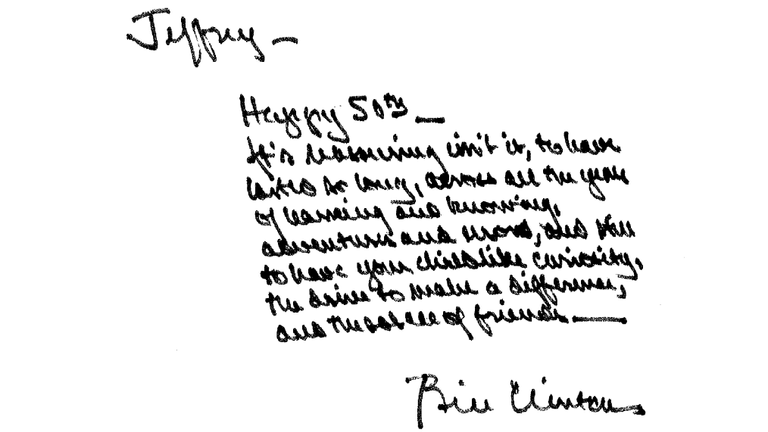 Jeffrey —
Happy 50th —
It's reassuring isn't it, to have
lasted so long, across all the years
of learning and knowing,
adventures and and
to have your childlike curiosity,
the drive to make a difference,
and the solace of friends —
Bill Clinton